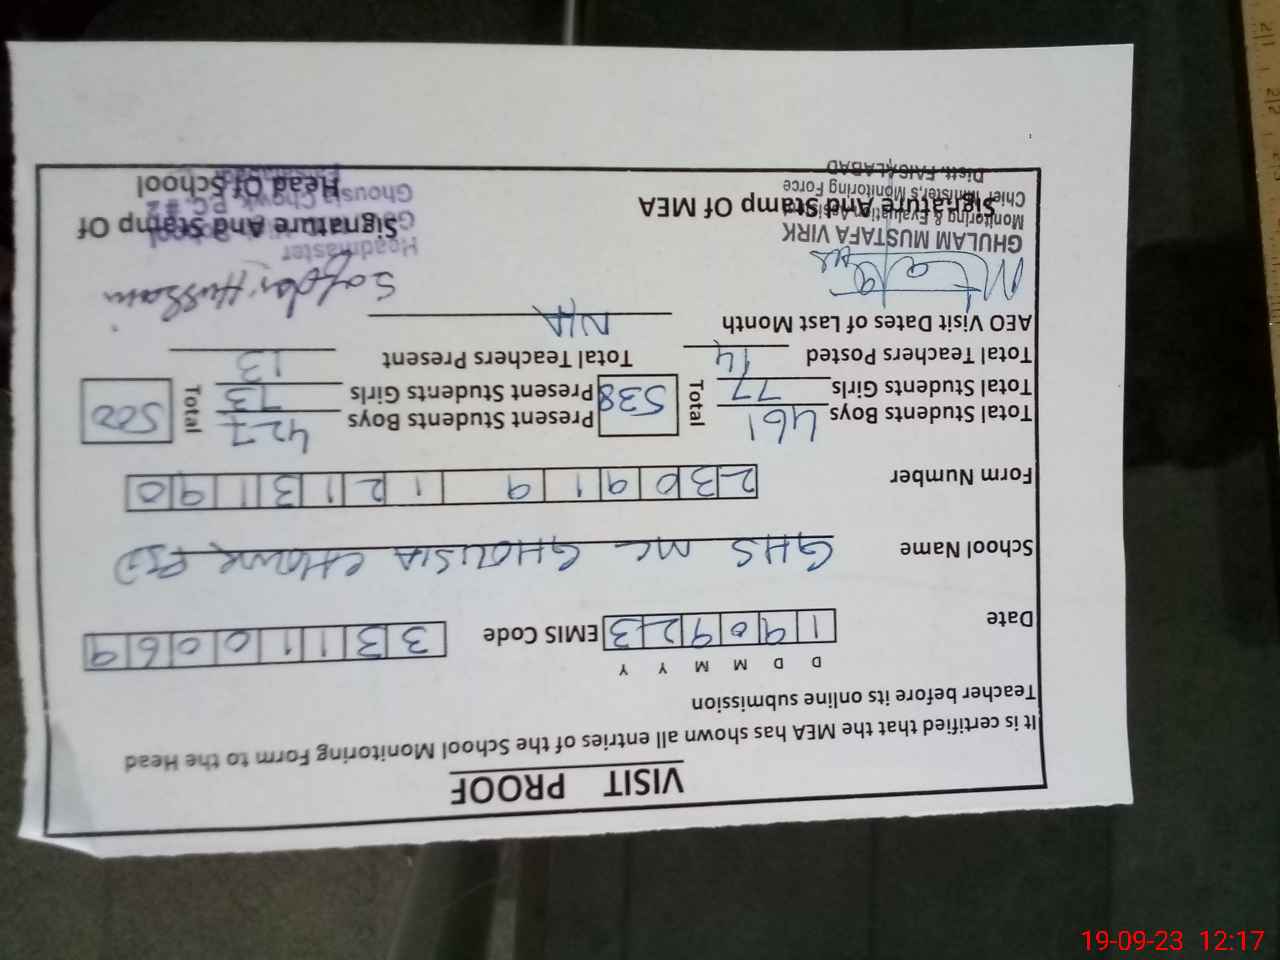 VISIT PROOF
It is certified that the MEA has shown all entries of the School Monitoring Form to the Head
Teacher before its online submission
D D M M Y Y
Date 1 9 0 9 2 3 EMIS Code 3 3 1 1 0 0 6 9
School Name GHS MC GHOUSIA CHOWK FSD
Form Number 2 3 0 9 1 9 1 2 1 3 1 9 0
Total Students Boys 461 Total 538 Present Students Boys 427 Total 500
Total Students Girls 77 Present Students Girls 73
Total Teachers Posted 14 Total Teachers Present 13
AEO Visit Dates of Last Month N/A
Safdar Hussain
GHULAM MUSTAFA VIRK
Monitoring & Evaluation Assistant
Chief Minister,s Monitoring Force
Distt. FAISALABAD
Signature And Stamp Of MEA
Headmaster
Ghousia Chowk
Signature And Stamp Of
Head Of School
19-09-23 12:17